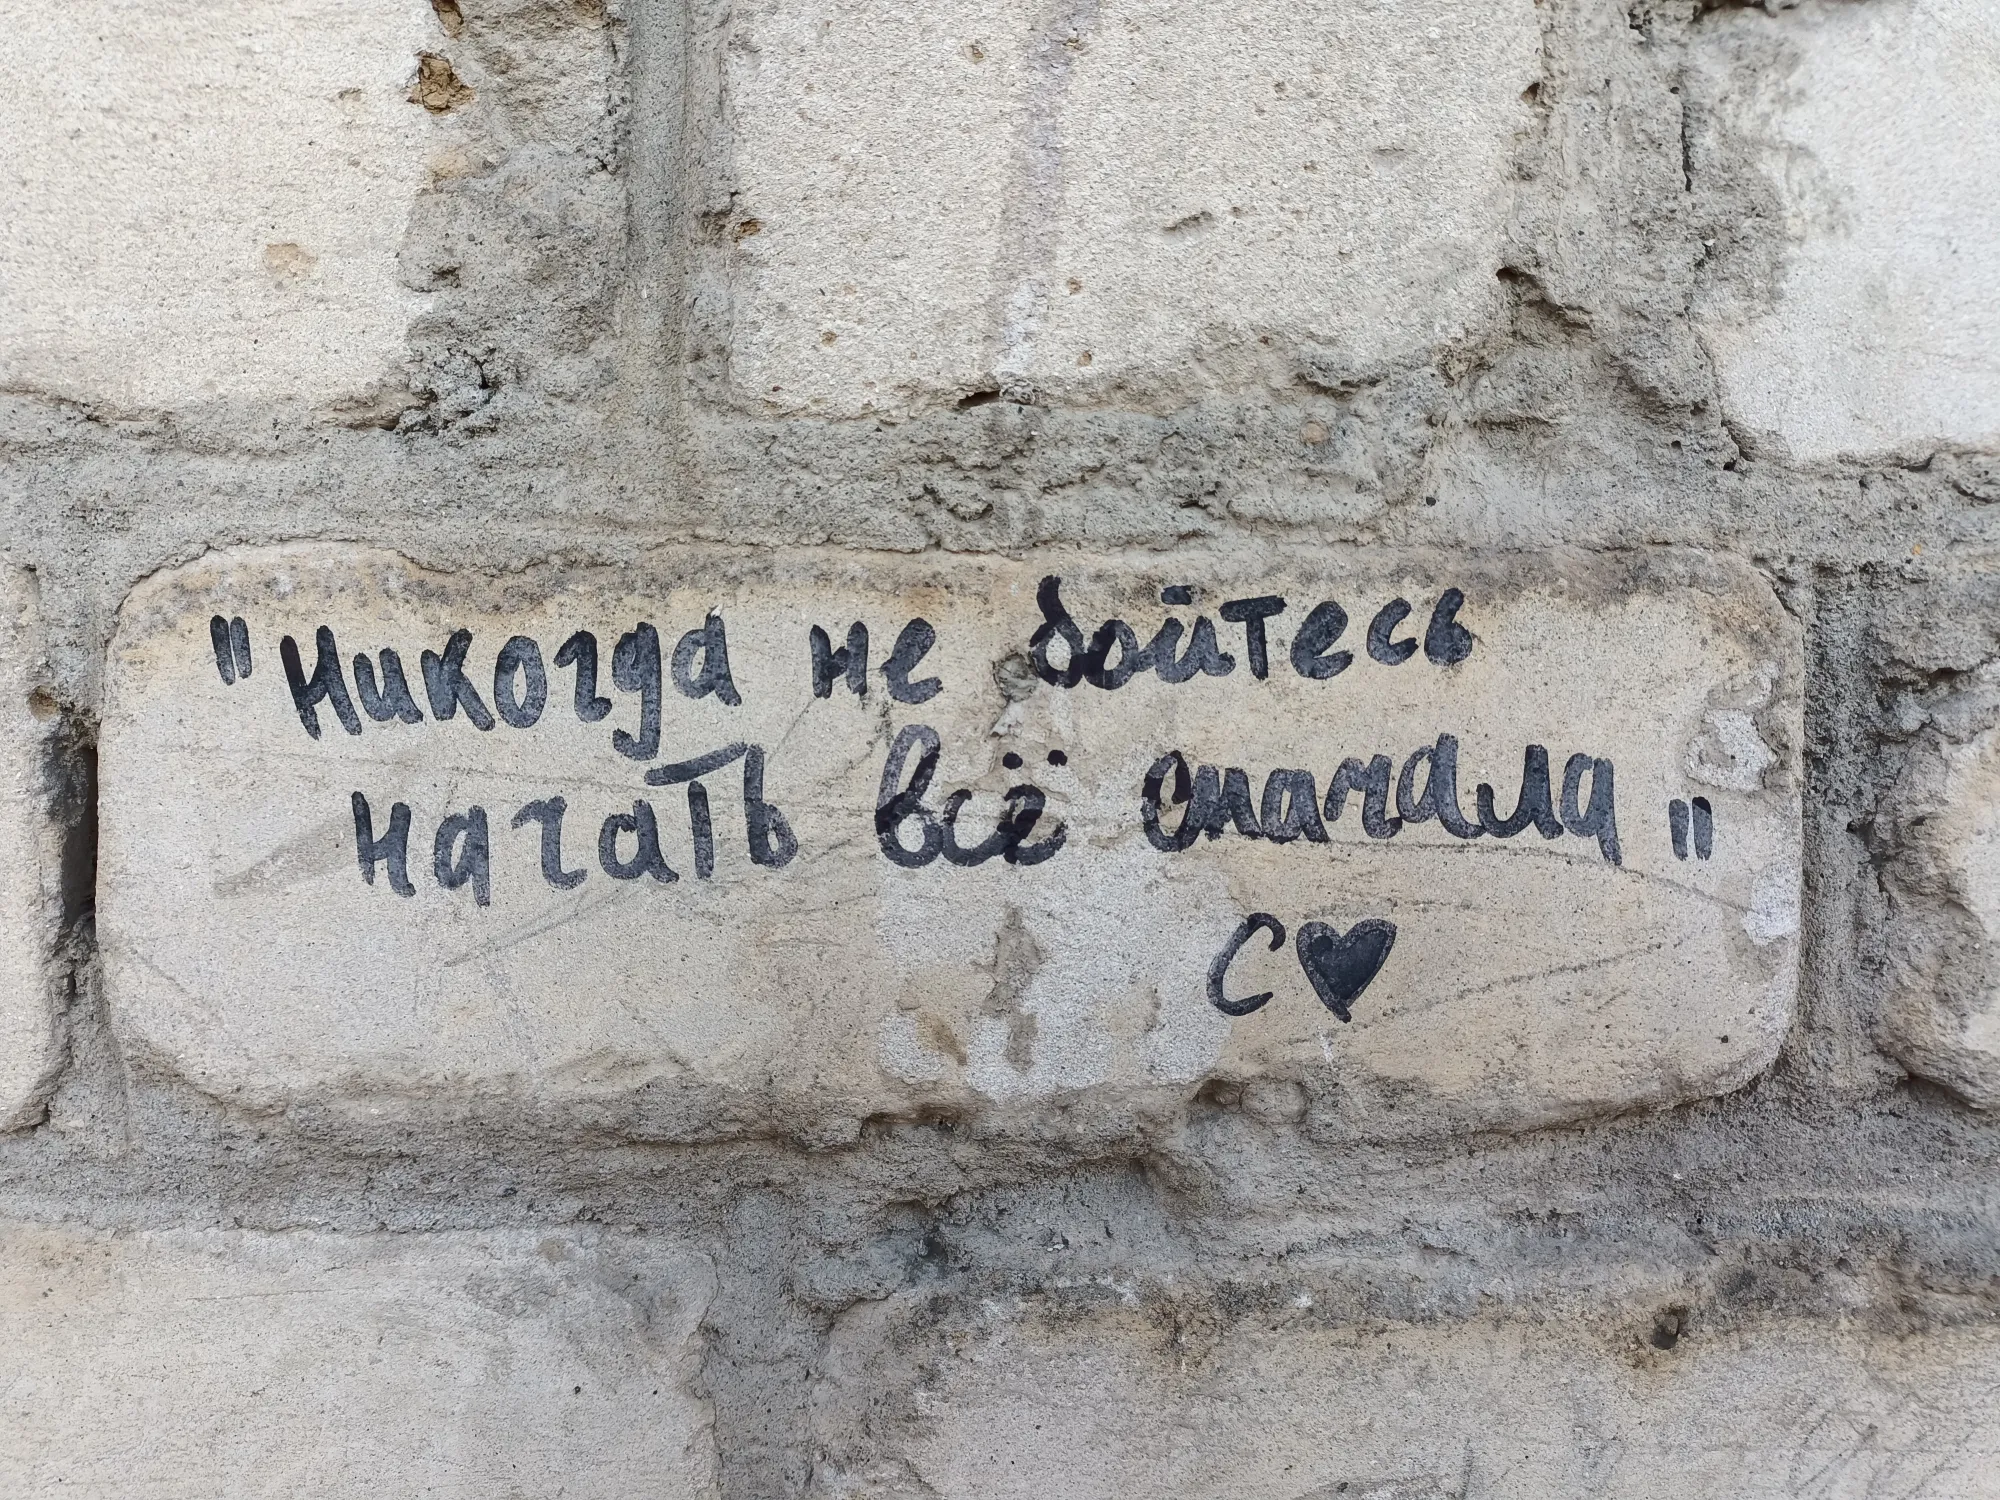 "Никогда не бойтесь
начать всё сначала"
С♥